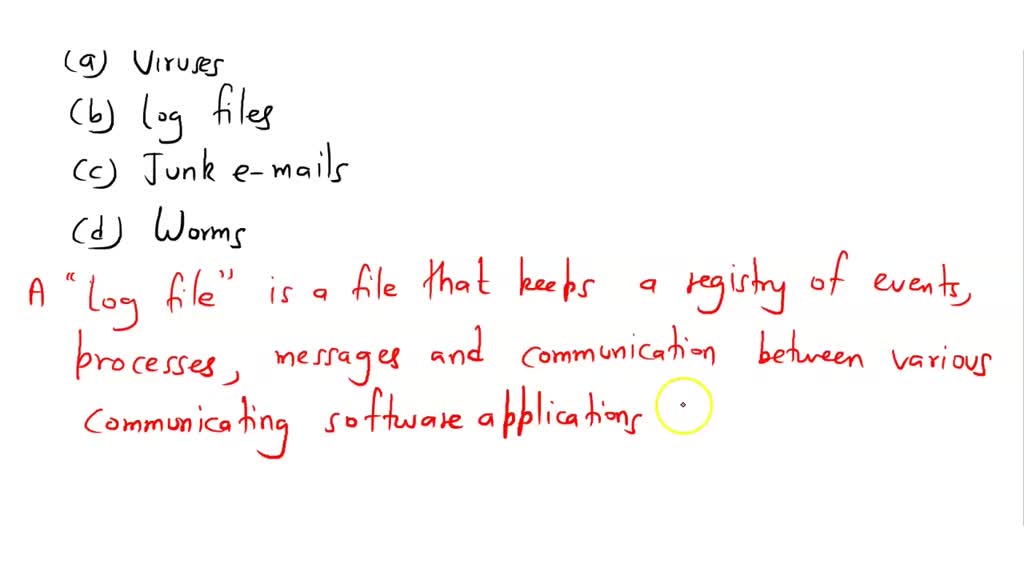 (a) Viruses
(b) Log files
(c) Junk e-mails
(d) Worms
A "Log file" is a file that keeps a registry of events,
processes, messages and communication between various
communicating software applications